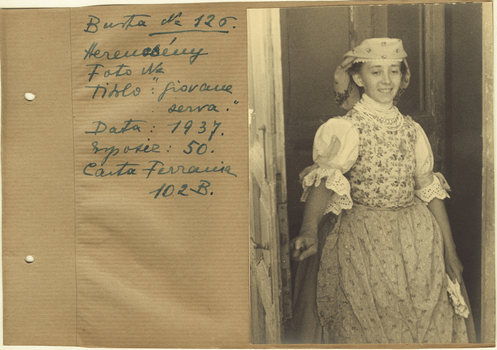 Busta No 126.
Herencsény
Foto No
Titolo "Giovane
serva."
Data: 1937.
50.
Carta Ferrania
102-B.